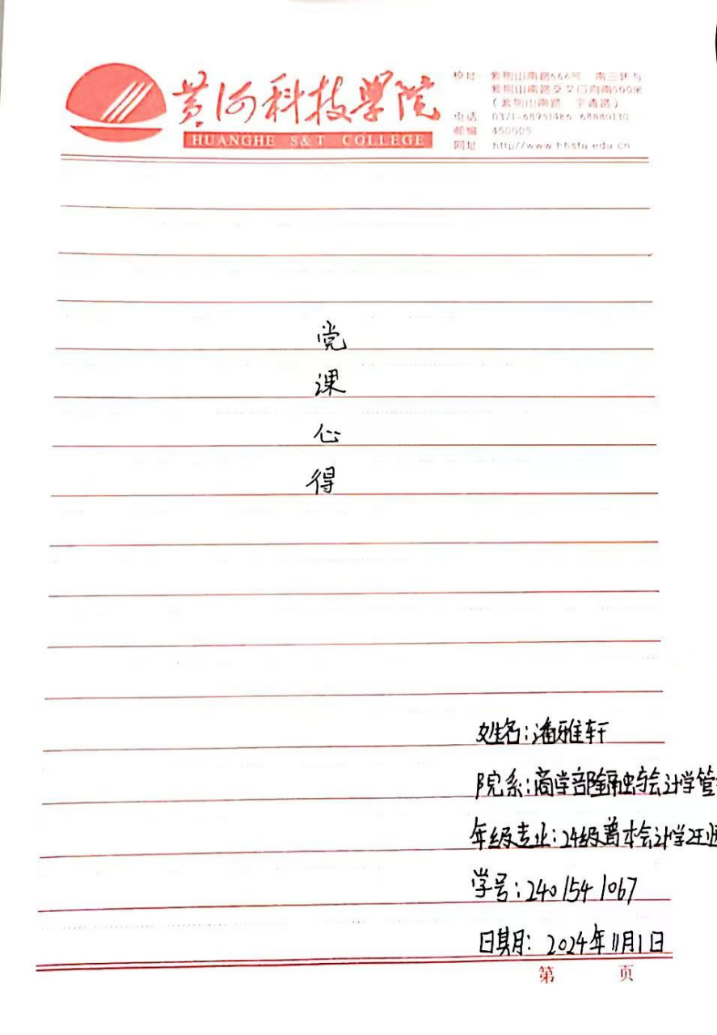 黄河科技学院
HUANGHE S&T COLLEGE
校址: 紫荆山南路666号 南三环与
紫荆山南路交叉口向南500米
(紫荆山南路 宇通路)
电话 0371-68951466 68880130
邮编 450005
网址 http://www.hhstu.edu.cn
党
课
心
得
姓名:潘雅轩
院系:商学部金融与会计学管
年级专业:24级普本会计学2班
学号:2401541067
日期: 2024年11月1日
第 页